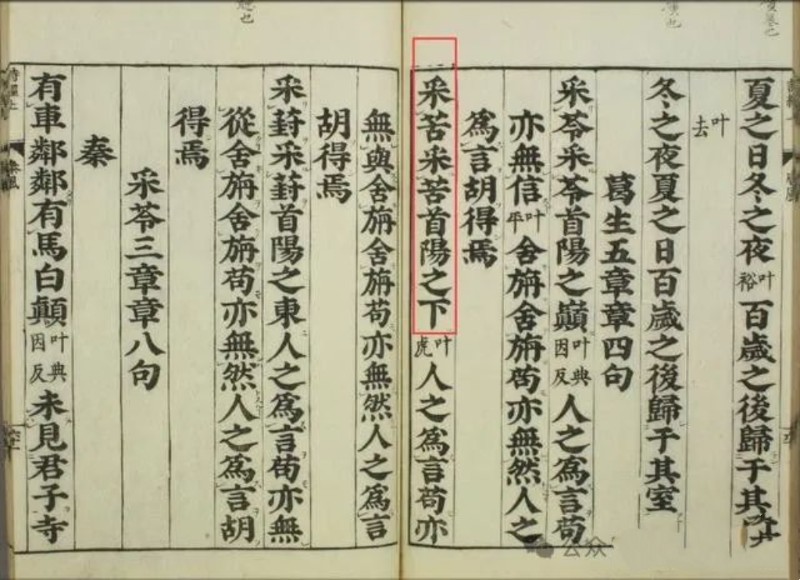 夏之日冬之夜叶裕百歲之後歸于其
叶去
冬之夜夏之日百歲之後歸于其室
葛生五章章四句
采苓采苓首陽之巔叶典因反人之爲言苟
亦無信叶平舍旃舍旃苟亦無然人之
爲言胡得焉
采苦采苦首陽之下叶虎人之爲言苟亦
無與舍旃舍旃苟亦無然人之爲言
胡得焉
采葑采葑首陽之東人之爲言苟亦無
從舍旃舍旃苟亦無然人之爲言胡
得焉
采苓三章章八句
秦
有車鄰鄰有馬白顛叶典因反未見君子寺
公众